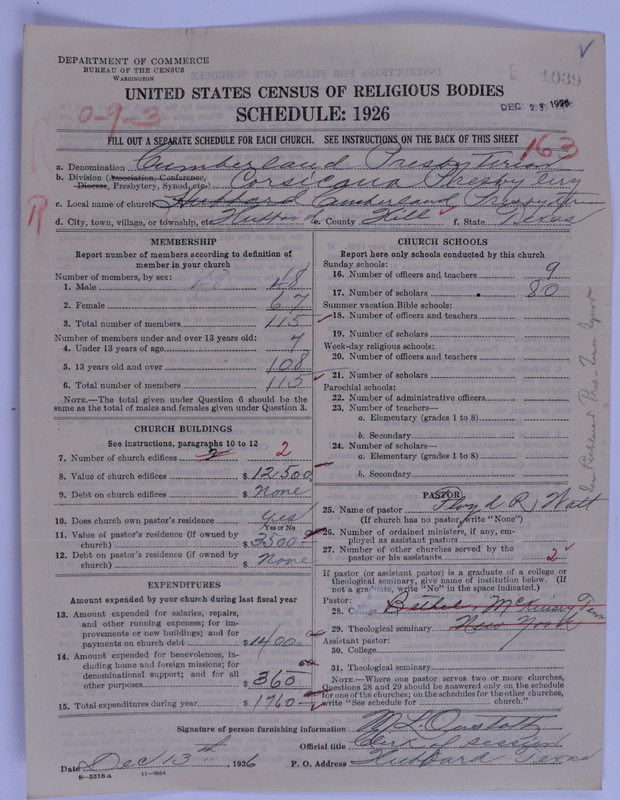 DEPARTMENT OF COMMERCE
BUREAU OF THE CENSUS
WASHINGTON
1039
UNITED STATES CENSUS OF RELIGIOUS BODIES
DEC 28 1926
SCHEDULE: 1926
0-9-3
FILL OUT A SEPARATE SCHEDULE FOR EACH CHURCH. SEE INSTRUCTIONS ON THE BACK OF THIS SHEET
163
a. Denomination Cumberland Presbyterian
b. Division (Association, Conference, Diocese, Presbytery, Synod, etc.) Corsicana Presbytery
c. Local name of church Hubbard Cumberland Presbyterian
R
d. City, town, village, or township, etc. Hubbard e. County Hill f. State Texas
MEMBERSHIP
Report number of members according to definition of member in your church
Number of members, by sex:
1. Male 48 48
2. Female 67
3. Total number of members 115
Number of members under and over 13 years old:
4. Under 13 years of age 7
5. 13 years old and over 108
6. Total number of members 115
NOTE.—The total given under Question 6 should be the same as the total of males and females given under Question 3.
CHURCH BUILDINGS
See instructions, paragraphs 10 to 12
7. Number of church edifices 2 2
8. Value of church edifices $ 12500
9. Debt on church edifices $ None
10. Does church own pastor's residence yes
Yes or No
11. Value of pastor's residence (if owned by church) $ 3500
12. Debt on pastor's residence (if owned by church) $ None
EXPENDITURES
Amount expended by your church during last fiscal year
13. Amount expended for salaries, repairs, and other running expenses; for improvements or new buildings; and for payments on church debt $ 1400
14. Amount expended for benevolences, including home and foreign missions; for denominational support; and for all other purposes $ 360
15. Total expenditures during year $ 1760
CHURCH SCHOOLS
Report here only schools conducted by this church
Sunday schools:
16. Number of officers and teachers 9
17. Number of scholars 80
Summer vacation Bible schools:
18. Number of officers and teachers
19. Number of scholars
Week-day religious schools:
20. Number of officers and teachers
21. Number of scholars
Parochial schools:
22. Number of administrative officers
23. Number of teachers—
a. Elementary (grades 1 to 8)
b. Secondary
24. Number of scholars—
a. Elementary (grades 1 to 8)
b. Secondary
PASTOR
25. Name of pastor Floyd R Watt
(If church has no pastor, write "None")
26. Number of ordained ministers, if any, employed as assistant pastors
27. Number of other churches served by the pastor or his assistants 2
If pastor (or assistant pastor) is a graduate of a college or theological seminary, give name of institution below. (If not a graduate, write "No" in the space indicated.)
Pastor:
28. College Bethel, McKensy Ten
29. Theological seminary New York
Assistant pastor:
30. College
31. Theological seminary
NOTE.—Where one pastor serves two or more churches, Questions 28 and 29 should be answered only on the schedule for one of the churches; on the schedules for the other churches, write "See schedule for church."
Signature of person furnishing information
Official title Clerk of session
Date Dec 13th, 1926 P. O. Address Hubbard Texas
8-5518a 11-9064